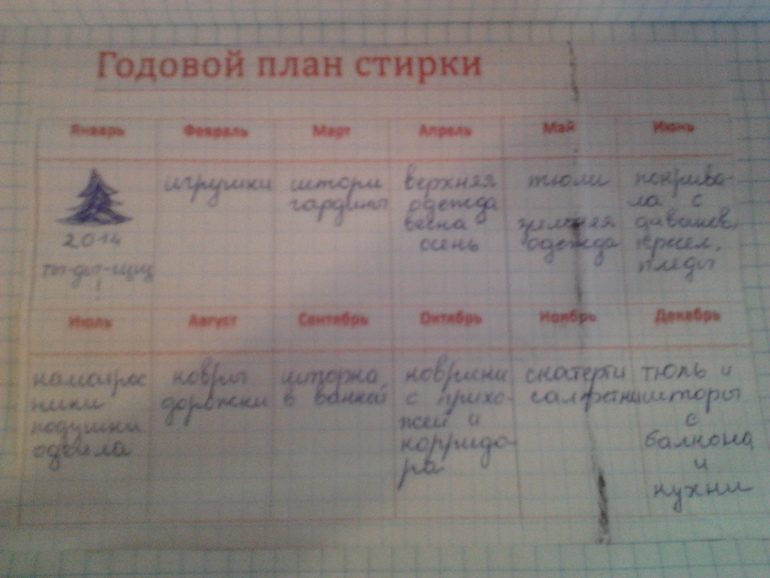 Годовой план стирки
Январь Февраль Март Апрель Май Июнь
2014
игрушки
штори
гардины
верхняя
одежда
весна
осень
тюли
зимняя
одежда
покрива-
ла с
диванов,
кресел,
пледы
Июль Август Сентябрь Октябрь Ноябрь Декабрь
наматрас
ники
подушки
одеяла
ковры
дорожки
шторка
в ванной
коврики
с прихо-
жей и
корридо-
ра
скатерти
салфетки
тюль и
шторы
с
балкона
и
кухни